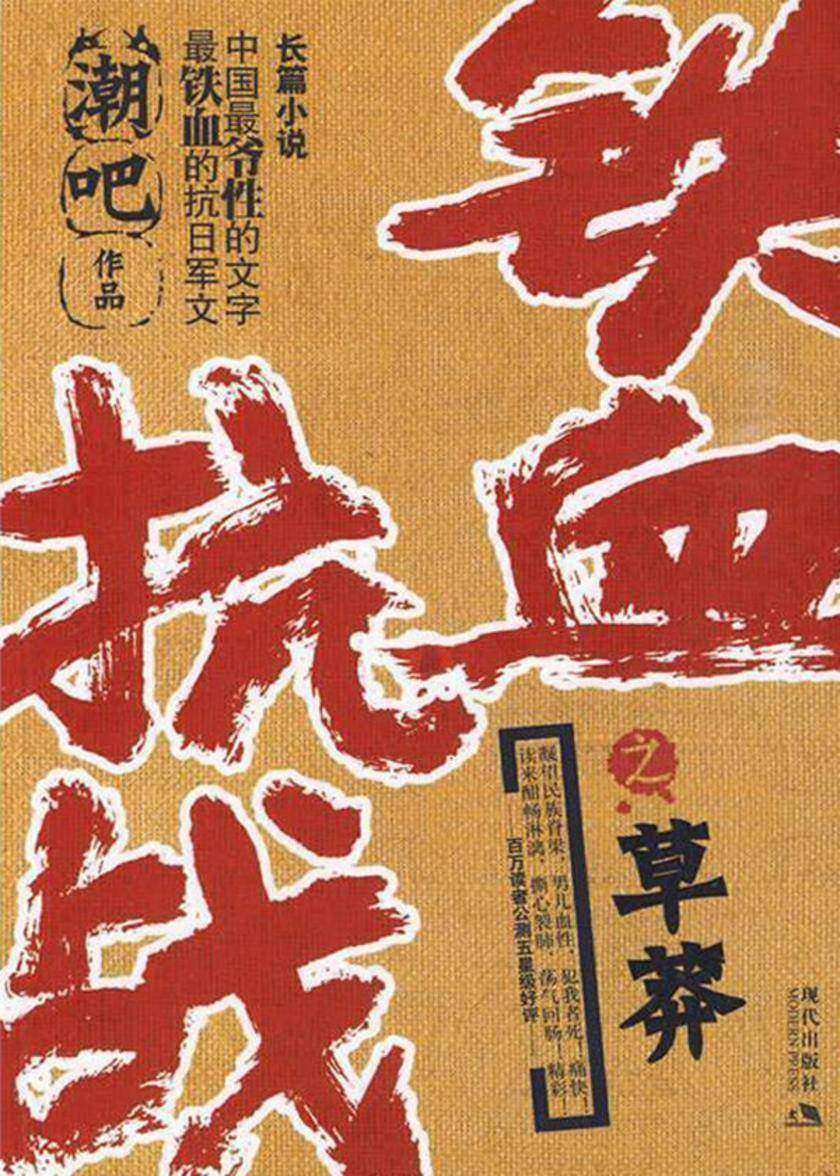 铁血
抗战
之
草莽
长篇小说
中国最爷性的文字
最铁血的抗日军文
潮吧
作品
民族脊梁,男儿血性,犯我者死!痛快!
读来酣畅淋漓,撕心裂肺,荡气回肠——精彩!
百万读者公测五星级好评——
现代出版社
MODERN PRESS